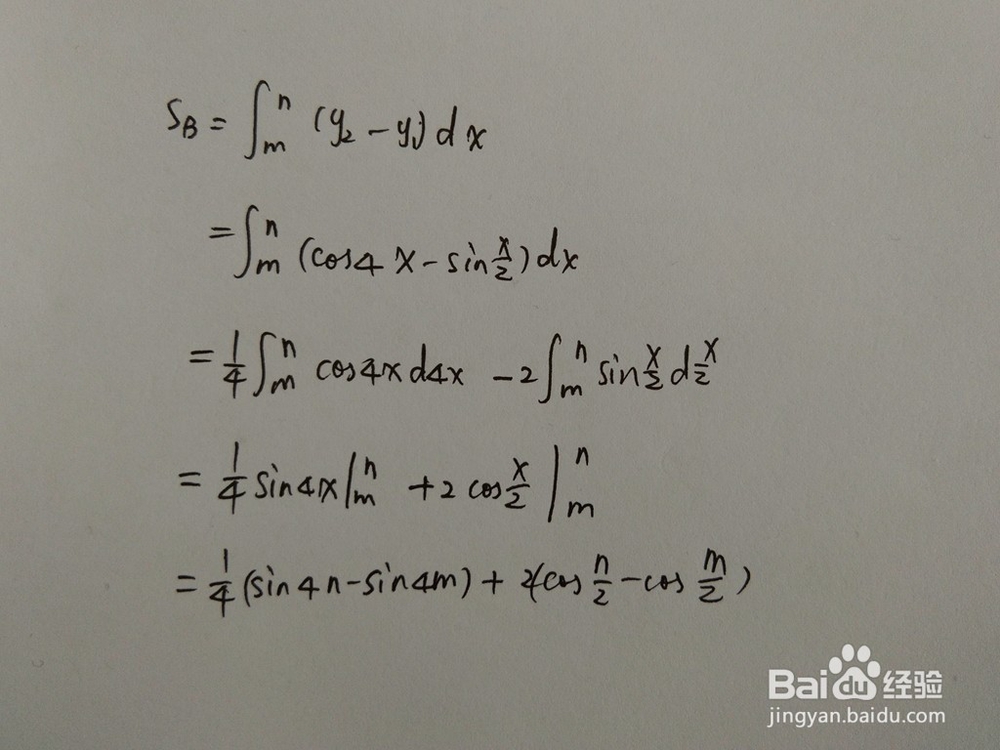 S_B = ∫_m^n (y₂ - y₁) dx
= ∫_m^n (cos4x - sin x/2) dx
= 1/4 ∫_m^n cos4x d4x - 2 ∫_m^n sin x/2 d x/2
= 1/4 sin4x |_m^n + 2 cos x/2 |_m^n
= 1/4 (sin4n - sin4m) + 2(cos n/2 - cos m/2)
Baidu 经验
jingyan.baidu.com